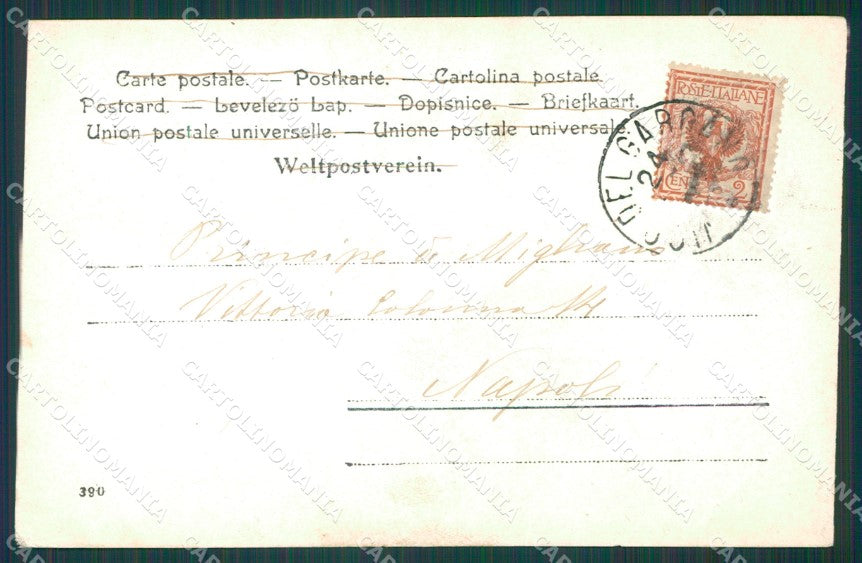 Carte postale. — Postkarte. — Cartolina postale
Postcard. — Levelező Lap. — Dopisnice. — Briefkaart.
Union postale universelle. — Unione postale universale.
Weltpostverein.
POSTE ITALIANE
CENT. 2
DEL GARG
24
Principe di Migliano
Vittoria Colonna 14
Napoli
390
CARTOLINOMANIA